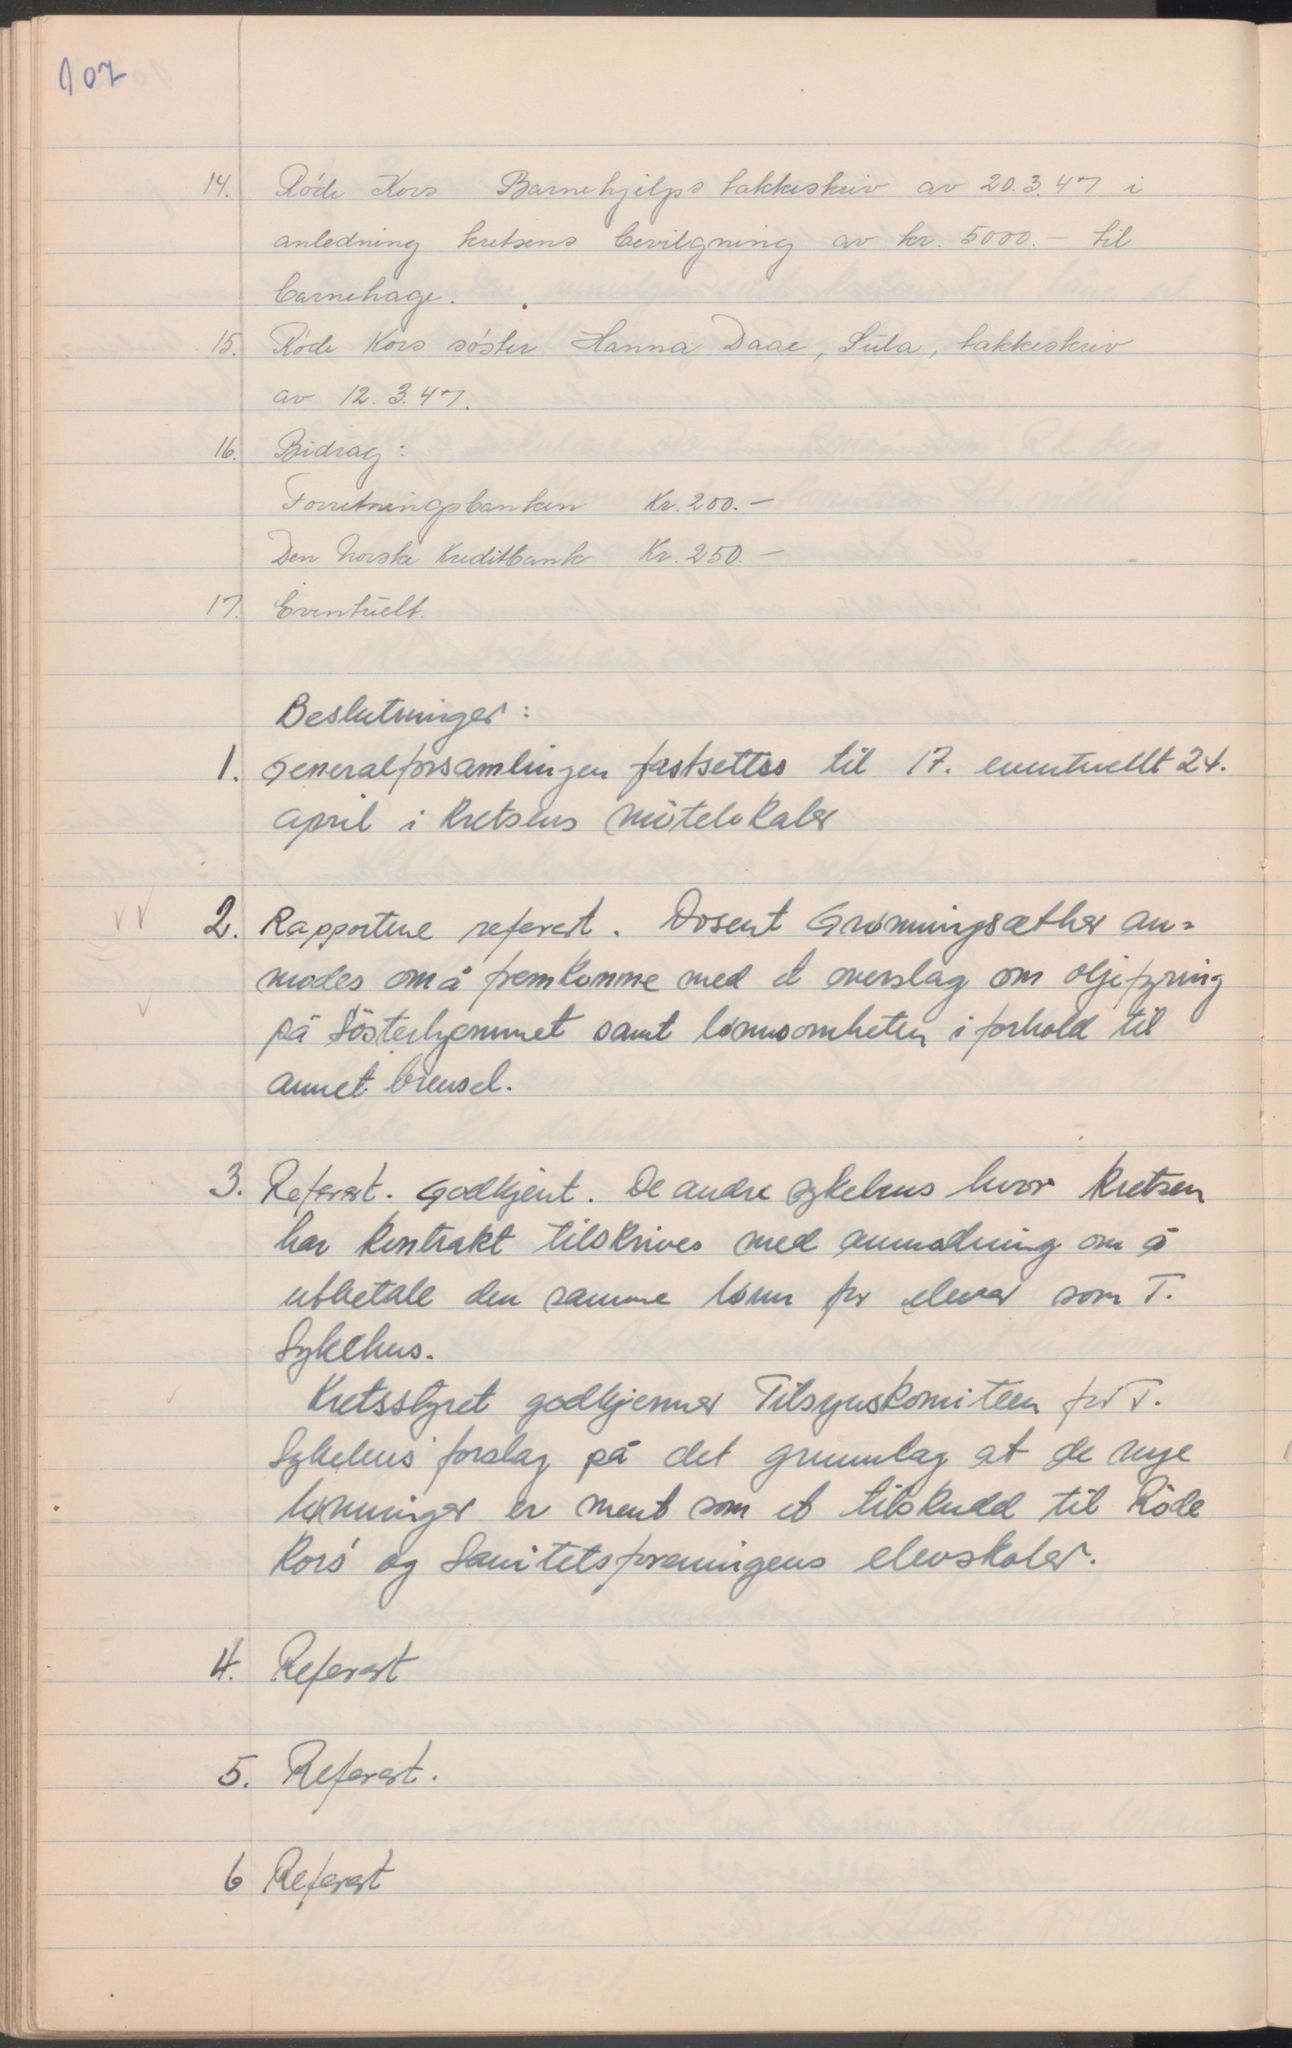 107
14. Røde Kors Barnehjelps takkeskriv av 20.3.47 i
anledning kretsens bevilgning av kr. 5000.- til
barnehage.
15. Røde Kors søster Hanna Daae, Sula, takkeskriv
av 12.3.47.
16. Bidrag:
Forretningsbanken Kr. 200.-
Den Norske Kreditbank Kr. 250.-
17. Eventuelt.
Beslutninger:
1. Generalforsamlingen fastsettes til 17. eventuellt 24.
april i Kretsens møtelokaler
2. Rapportene referert. Dosent Grønningsæther an=
modes om å fremkomme med et overslag om oljefyring
på Søsterhjemmet samt lønnsomheten i forhold til
annet brensel.
3. Referert. Godkjent. De andre sykehus hvor Kretsen
har kontrakt tilskrives med anmodning om å
utbetale den samme lønn for elever som T.
Sykehus.
Kretsstyret godkjenner Tilsynskomiteen for T.
Sykehus' forslag på det grunnlag at de nye
lønninger er ment som et tilskudd til Røde
Kors' og Sanitetsforeningens elevskoler.
4. Referert
5. Referert.
6 Referert